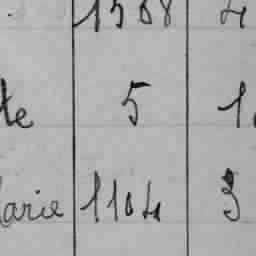 1568 4
te 5 1
Marie 1104 3